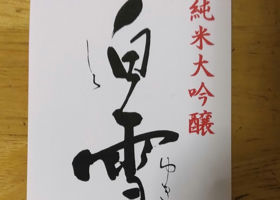 純米大吟醸
白雪
しら
ゆき